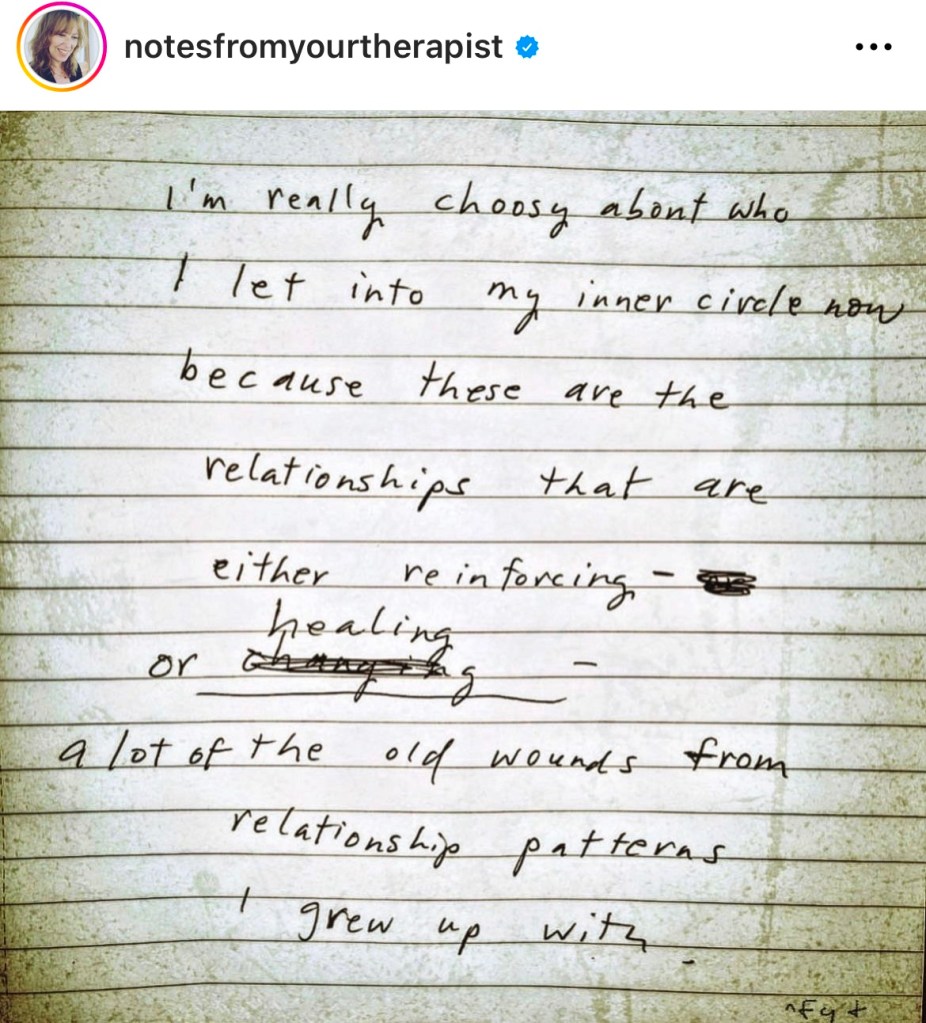 notesfromyourtherapist
I'm really choosy about who
I let into my inner circle now
because these are the
relationships that are
either reinforcing -
healing
or changing -
a lot of the old wounds from
relationship patterns
I grew up with
nfyt